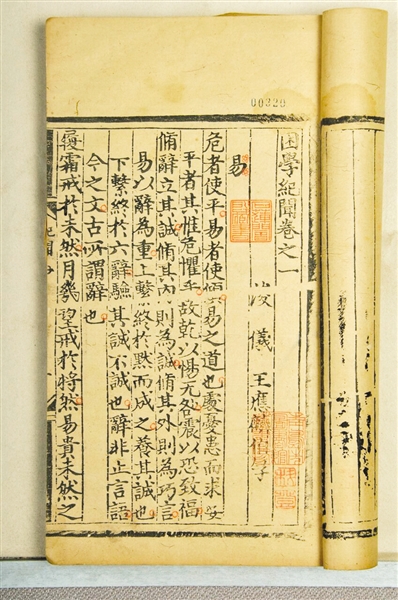 00320
困學紀聞卷之一
浚儀 王應麟伯厚
易
危者使平易者使傾易之道也處憂患而求安
平者其惟危懼乎故乾以惕无咎震以恐致福
脩辭立其誠脩其內則為誠脩其外則為巧言
易以辭為重上繫終於默而成之養其誠也
下繫終於六辭驗其誠不誠也辭非止言語
今之文古所謂辭也
履霜戒於未然月幾望戒於將然易貴未然之